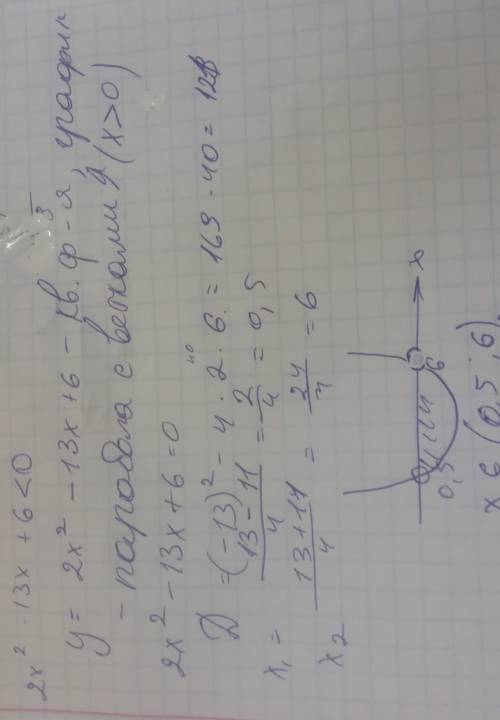 2x² - 13x + 6 < 0
y = 2x² - 13x + 6 - кв. ф-я, график
- парабола с ветками (x>0)
2x² - 13x + 6 = 0
D = (-13)² - 4 · 2 · 6 = 169 - 40 = 121
x₁ = 13 - 11 / 4 = 2/4 = 0,5
x₂ 13 + 11 / 4 = 24/4 = 6
0,5 6 x
x ∈ (0,5 ; 6).